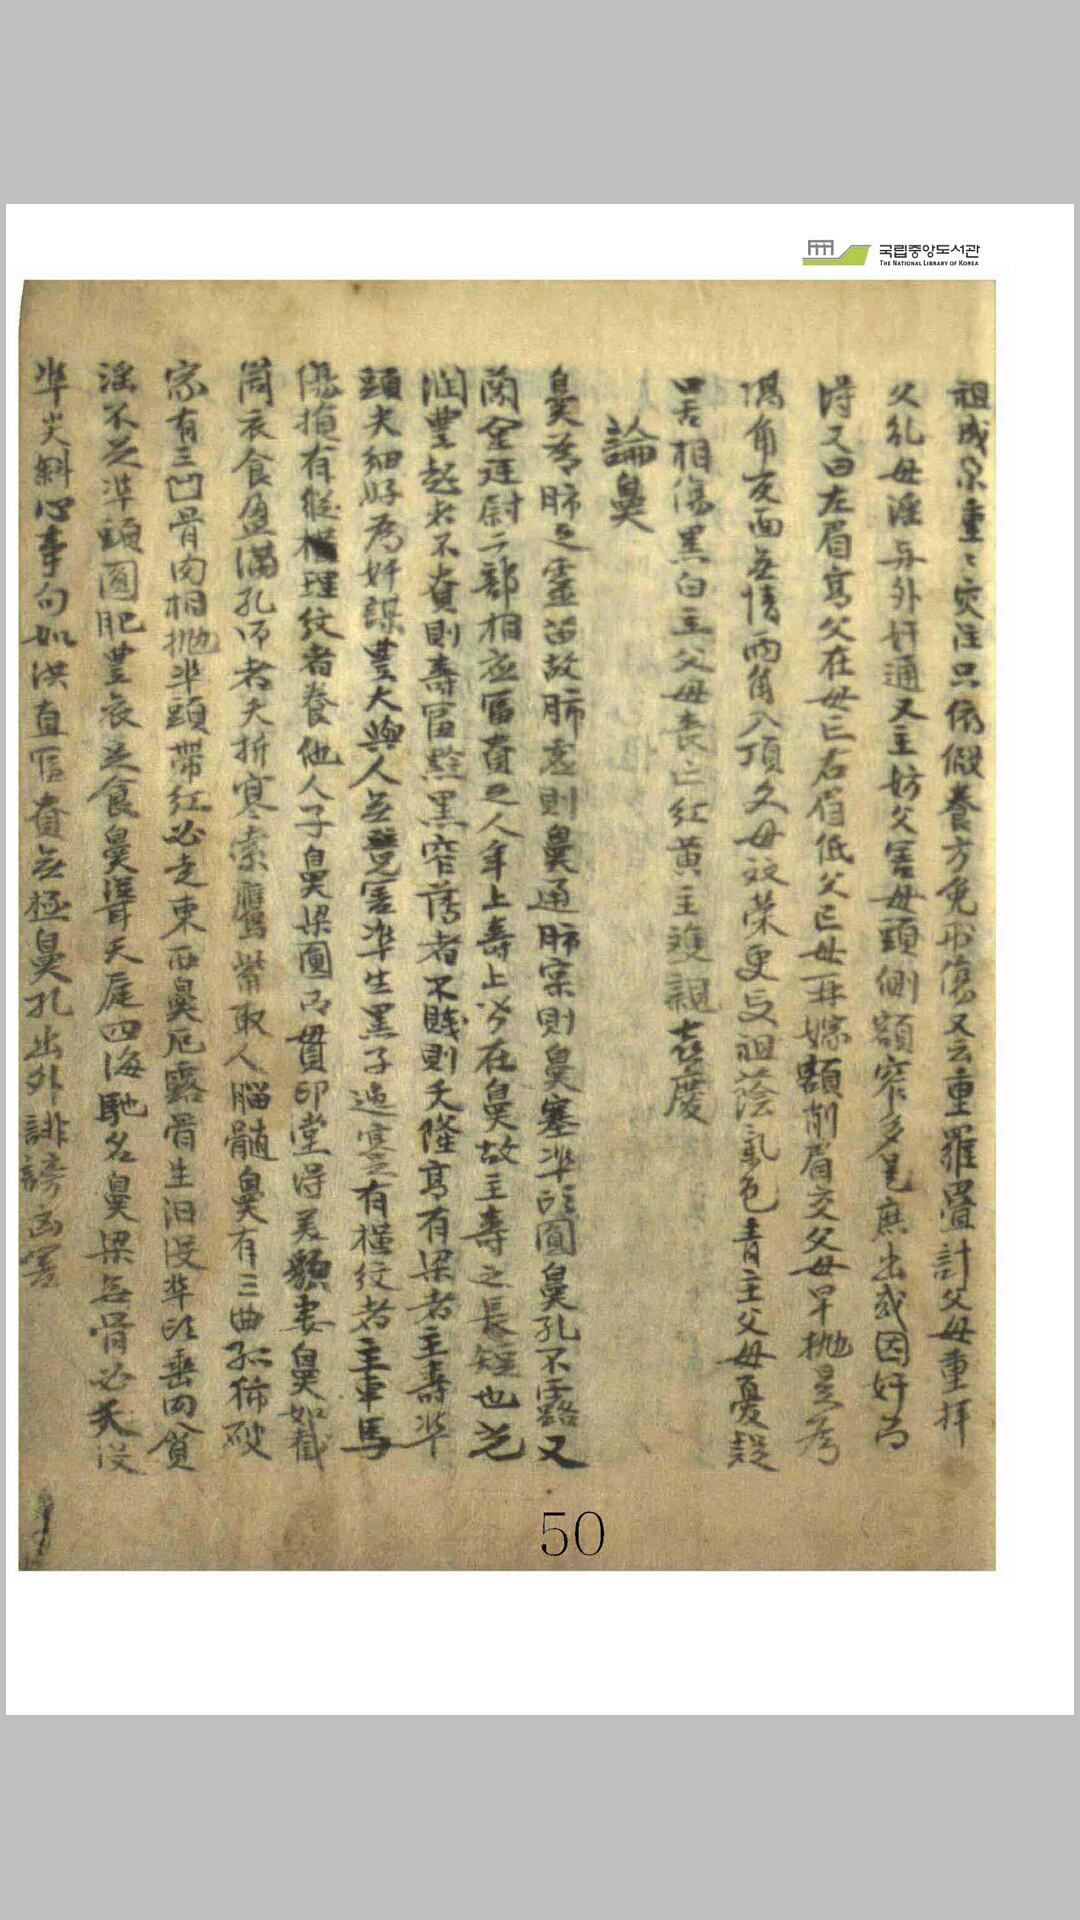 국립중앙도서관
THE NATIONAL LIBRARY OF KOREA
祖成宗重重災注只依假養方免刑傷又云重羅疊計父母重拜
父乱母淫与外奸通又主妨父害母頭側額窄多是庶出或因奸而
得又曰左眉高父在母亡右眉低父亡母再嫁額削眉交父母早抛是爲
隅角反面無情兩角入頂父母双荣更受祖蔭氣色青主父母憂疑
口舌相傷黑白主父母丧亡紅黄主雙親喜慶
論鼻
鼻爲肺之靈苗故肺虚則鼻通肺宲則鼻塞準頭圓鼻孔不露又
蘭全廷尉二部相应富貴之人年上寿上皆在鼻故主壽之長短也光
潤豊起者不貴則壽富黲黑窄薄者不賤則夭隆高有梁者主壽準
頭尖細好為奸謀豊大與人無害準生黑子迍蹇有橫紋者主車馬
傷損有縱橫理紋者養他人子鼻梁圓而貫印堂得美顏妻鼻如截
筒衣食盈滿孔仰者夭折寒索鷹觜取人腦髓鼻有三曲孤獨破
家有三凹骨肉相抛準頭帶紅必走東西鼻危露骨生汨没準头垂肉貪
淫不足準頭圓肥豊衣足食鼻聳天庭四海馳名鼻梁無骨必夭没
準尖斜心事勾如洪直富貴無極鼻孔出外誹謗凶害
50